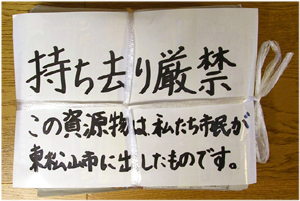 持ち去り厳禁
この資源物は、私たち市民が
東松山市に出したものです。